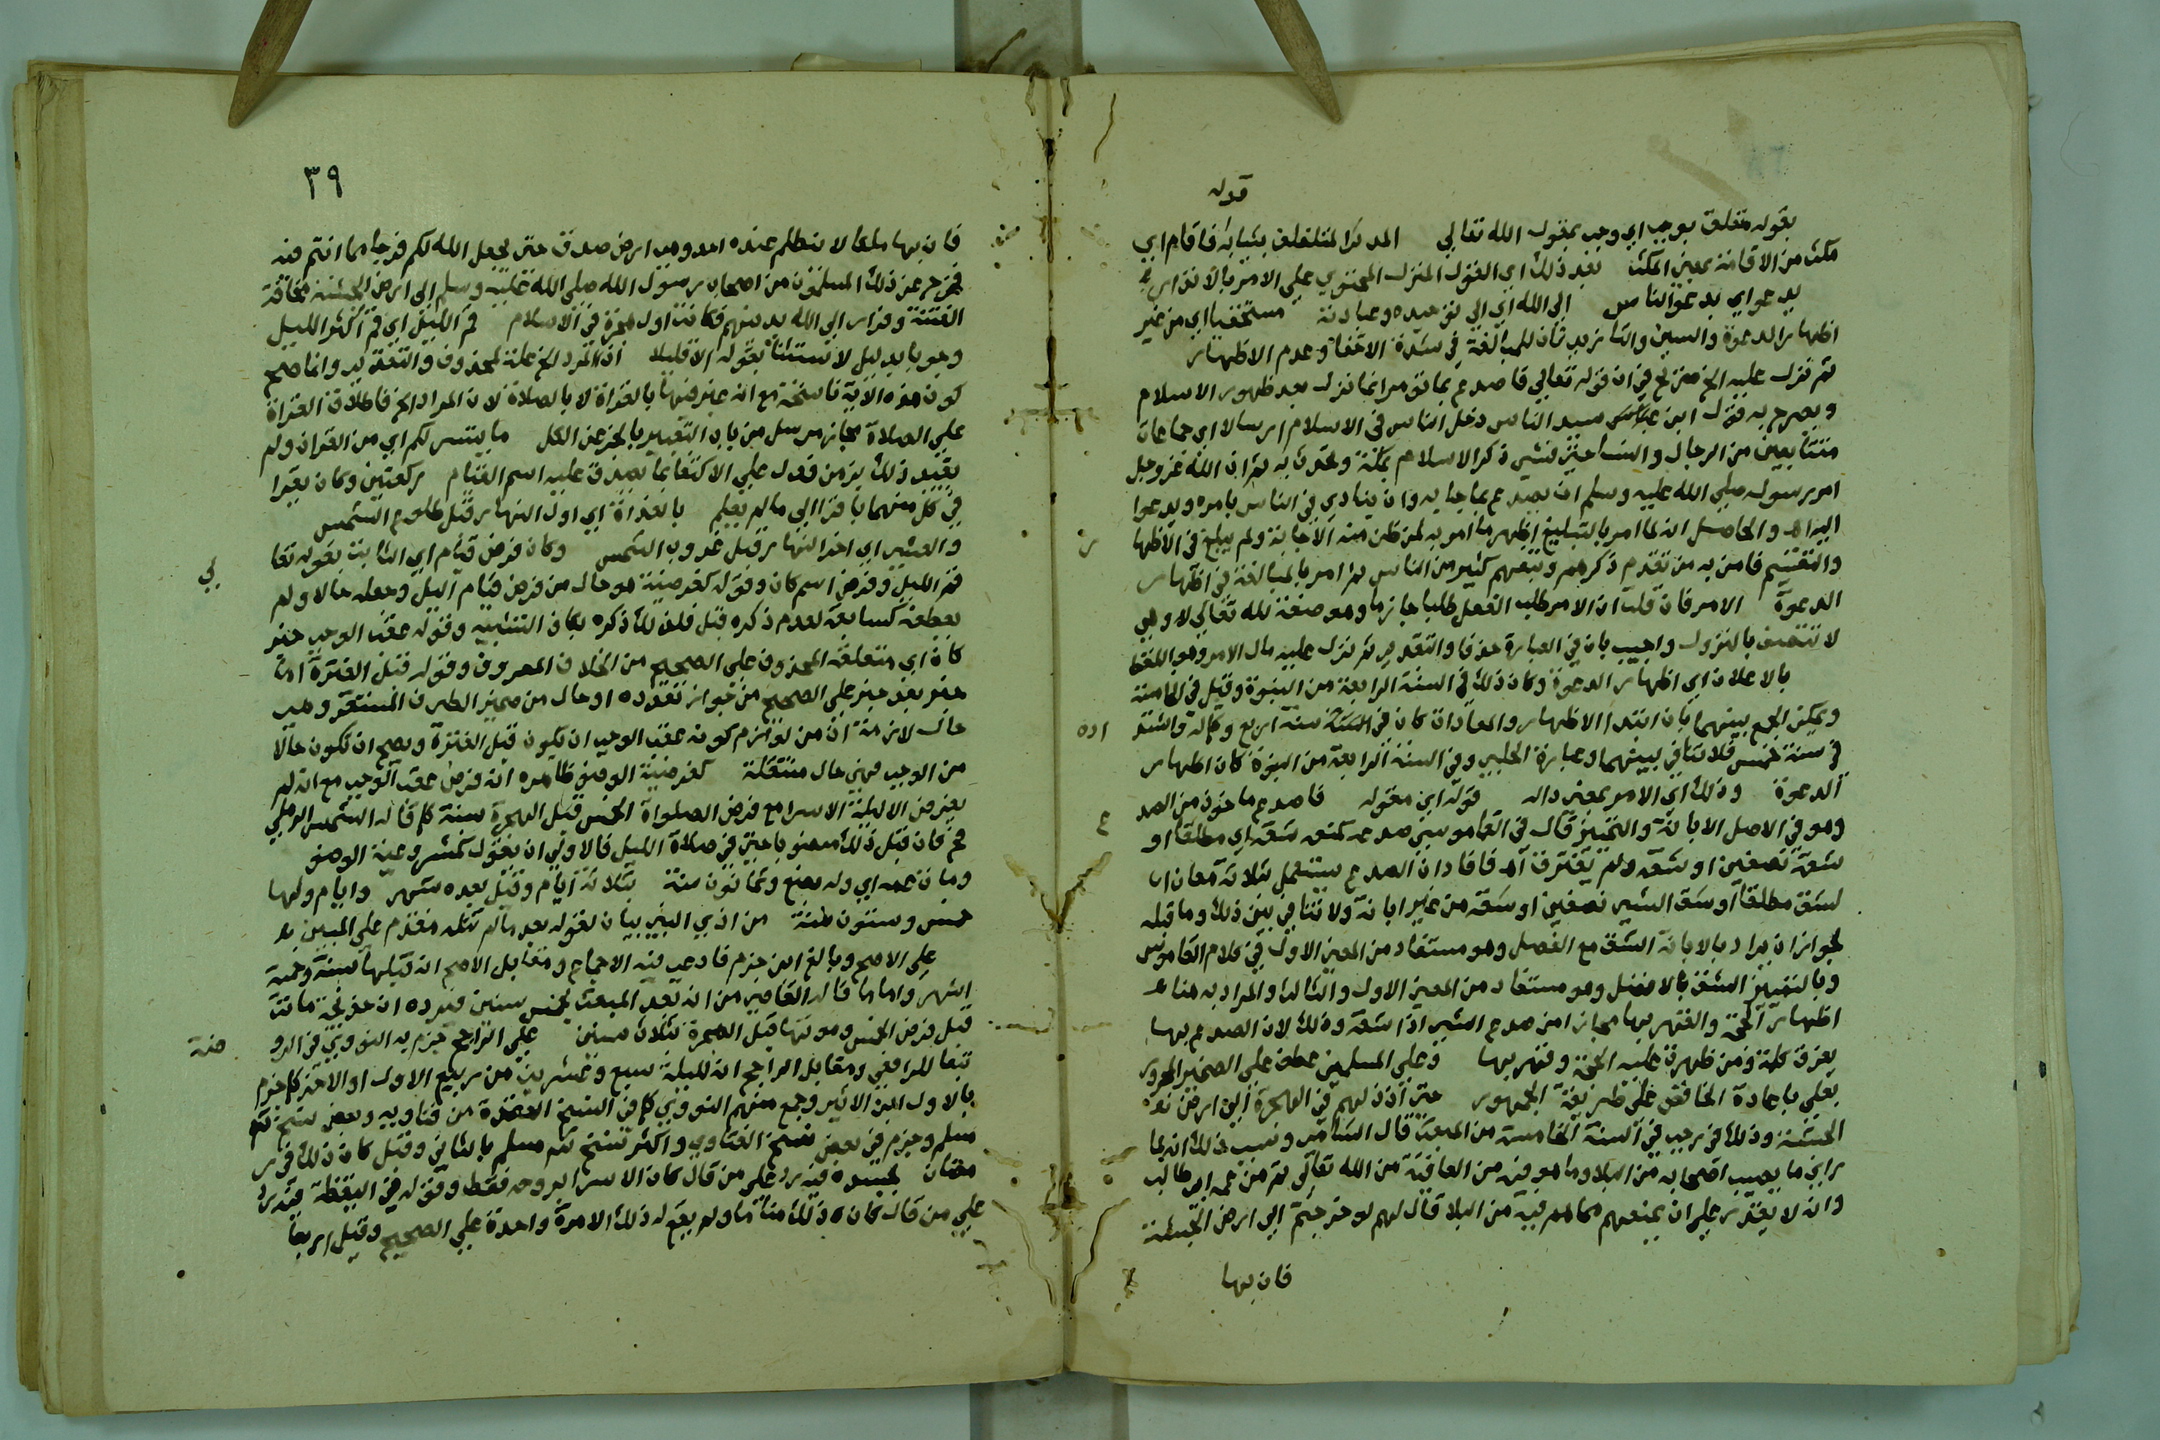 قوله
بقوله متعلق بوجب اي وجب بقول الله تعالى المدثر المتلفلف بثيابه فاقام اي
مكث من الاقامة بمعنى المكث بعد ذلك اي القول المنزل المحتوي على الامر بالانذار
يدعو اي يدعو الناس الى الله اي الى توحيده وعبادته مستخفيا اي من غير
اظهار الدعوة والسين والتا زيدتان للمبالغة في شدة الاخفا وعدم الاظهار
ثم نزل عليه الخ صريح في ان قوله تعالى فاصدع بما تؤمر انما نزل بعد ظهور الاسلام
ويصرح به قول ابن سيد الناس دخل الناس في الاسلام ارسالا اي جماعات
متتابعين من الرجال والنسا حتى فشى ذكر الاسلام بمكة وتحدث به ثم ان الله عز وجل
امر رسوله صلى الله عليه وسلم ان يصدع بما جا به وان ينادي في الناس بامره ويدعوا
اليه اهـ والحاصل انه لما امر بالتبليغ اظهر ما امر به لمن ظن منه الاجابة ولم يبلغ في الاظها
ر
والتقسيم فامن به من تقدم ذكرهم وتبعهم كثير من الناس ثم امر بالمبالغة في اظهار
الدعوة الامر فان قلت ان الامر طلب الفعل طلبا جازما وهو صفة لله تعالى لا وهي
لا تتصف بالنزول واجيب بان في العبارة حذفا والتقدير ثم نزل عليه دال الامر وهو اللفظ
بالاعلان اي اظهار الدعوة وكان ذلك في السنة الرابعة من النبوة وقيل في الخامسة
ويمكن الجمع بينهما بان ابتدا الاظهار والمعاداة كان في سنة اربع وكماله واشتد
اده
في سنة خمس فلا تنافي بينهما وعبارة الحلبي وفي السنة الرابعة من النبوة كان اظهار
الدعوة وذلك اي الامر بمعنى داله قوله اي مقوله فاصدع ماخوذ من الصد
ع
وهو في الاصل الابانة والتمييز قال في القاموس صدعه كمنعه شقه اي مطلقا او
شقه نصفين او شقه ولم يفترق اهـ فافاد ان الصدع يستعمل بثلاثة معان ا
لشق مطلقا او شق الشي نصفين او شقه من غير ابانة ولا تنافي بين ذلك وما قبله
لجواز ان يراد بالابانة الشق مع الفصل وهو مستفاد من المعنى الاول في كلام القاموس
وبالتمييز الشق بلا فصل وهو مستفاد من المعنى الاول والثالث والمراد به هنا
اظهار الحجة والقهر بها مجازا من صدع الشي اذا شقه وذلك لان الصدع بها
يفرق كلمة من ظهرت عليه الحجة وقهر بها وعلى المسلمين عطف على الضمير المجرور
بعلى باعادة الخافض على طريقة الجمهور حتى اذن لهم في الهجرة الى ارض
الحبشة وذلك في رجب في السنة الخامسة من المبعث قال الشامي وسبب ذلك انه لما
راى ما يصيب اصحابه من البلا وما هو فيه من العافية من الله تعالى ثم من عمه ابي طالب
وانه لا يقدر على ان يمنعهم مما هم فيه من البلا قال لهم لو خرجتم الى ارض الحبشة
فان بها
٣٩
فان بها ملكا لا يظلم عنده احد وهي ارض صدق حتى يجعل الله لكم فرجا مما انتم فيه
فخرج عند ذلك المسلمون من اصحاب رسول الله صلى الله عليه وسلم الى ارض الحبشة مخافة
الفتنة وفرارا الى الله بدينهم فكانت اول هجرة في الاسلام قم الليل اي قم اكثر الليل
وجوبا بدليل الاستثنا بقوله الا قليلا اذ المراد الخ علة لمحذوف والتقدير وانما صح
كون هذه الاية ناسخة مع انه عبر فيها بالقراة لا بالصلاة لان المراد الخ فاطلاق القراة
على الصلاة مجاز مرسل من باب التعبير بالجز عن الكل ما يتيسر لكم اي من القران ولم
يقيد ذلك بزمن فدل على الاكتفا بما يصدق عليه اسم القيام ركعتين وكان يقرا
في كل منهما باقرا الى ما لم يعلم بالغداة اي اول النهار قبل طلوع الشمس
والعشي اي اخر النهار قبل غروب الشمس وكان فرض قيام اي الثابت بقوله تعا
لي
قم الليل وفرض اسم كان وقوله كفرضية هو حال من فرض قيام الليل وجعله حالا ولم
يعطفه كسابقه لعدم ذكره قبل فلذلك ذكره بكاف التشبيه وقوله عقب الوحي خبر
كان اي متعلقه المحذوف على الصحيح من الخلاف المعروف وقوله قبل الفترة اما
خبر بعد خبر على الصحيح من جواز تعدده او حال من ضمير الظرف المستقر وهي
حال لازمة اذ من لوازم كونه عقب الوحي ان يكون قبل الفترة ويصح ان تكون حالا
من الوحي فهي حال منتقلة كفرضية الوضو ظاهره انه فرض عقب الوحي مع انه لم
يفرض الا ليلة الاسرا مع فرض الصلوات الخمس قبل الهجرة بسنة كما قاله الشمس الرملي
فان قبل ذلك مندوبا حتى في صلاة الليل فالاولى ان يقول كمشروعية الوضو
ومات عمه اي وله بضع وثمانون سنة بثلاثة ايام وقيل بعده بشهر وايام ولها
خمس وستون سنة من اذي البين بيان لقوله بعد ما لم تنله مقدم على المبين
على الاصح وبالغ ابن حزم فادعى فيه الاجماع ومقابل الاصح انه قبلها بسنة وخمسة
اشهر واما ما قاله القاضي من انه بعد المبعث بخمس سنين فيرده ان خديجة ماتت
قبل فرض الخمس وموتها قبل الهجرة بثلاث سنين على الراجح جزم به النووي في الرو
ضة
تبعا للرافعي ومقابل الراجح انه لليلة سبع وعشرين من ربيع الاول او الاخر كما جزم
بالاول ابن الاثير وجمع منهم النووي كما في النسخ المعتمدة من فتاويه وبعض نسخ شرح
مسلم وجزم في بعض نسخ الفتاوي واكثر نسخ شرح مسلم بالثاني وقيل كان ذلك في ر
مضان بجسده فيه رد على من قال كان الاسرا بروحه فقط وقوله في اليقظة فيه رد
على من قال كان ذلك مناما ولم يقع له ذلك الا مرة واحدة على الصحيح وقيل اربعا